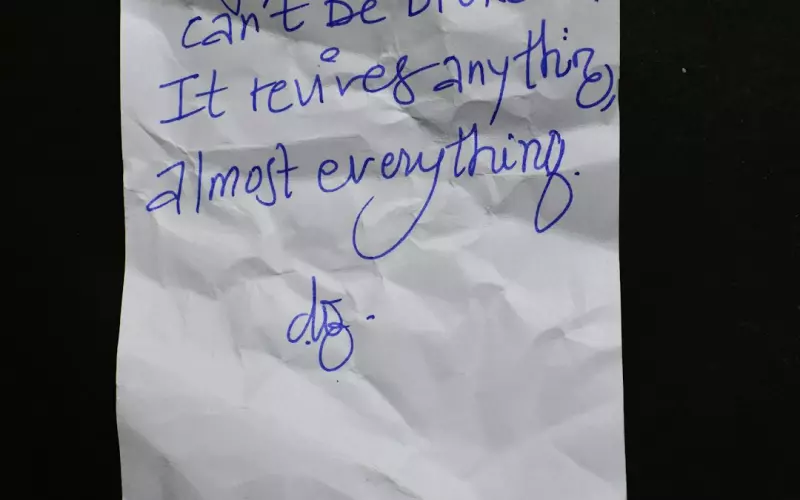 can't be
It revives anything,
almost everything.